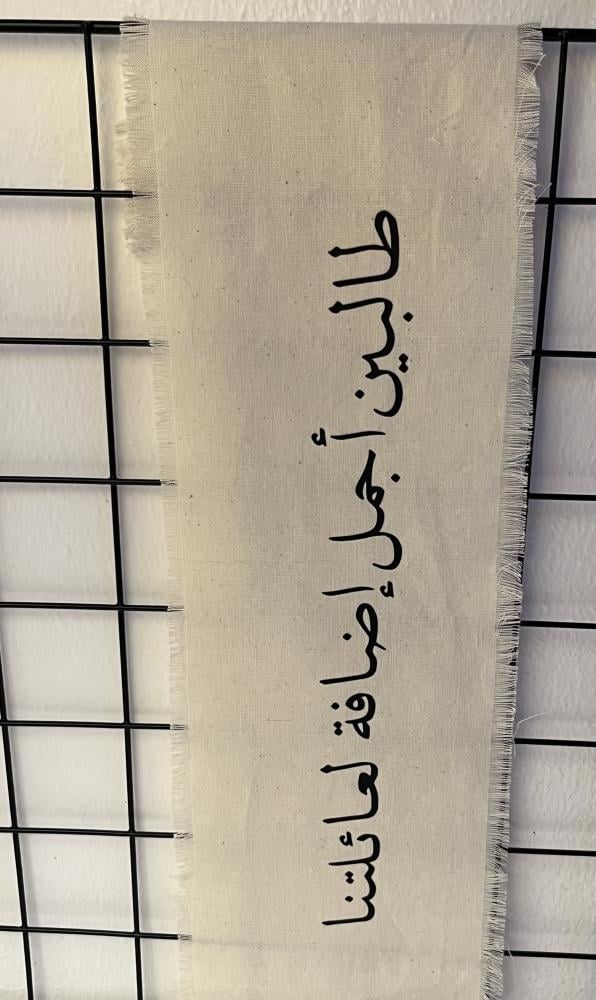 طالبين أجمل إضافة لعائلتنا